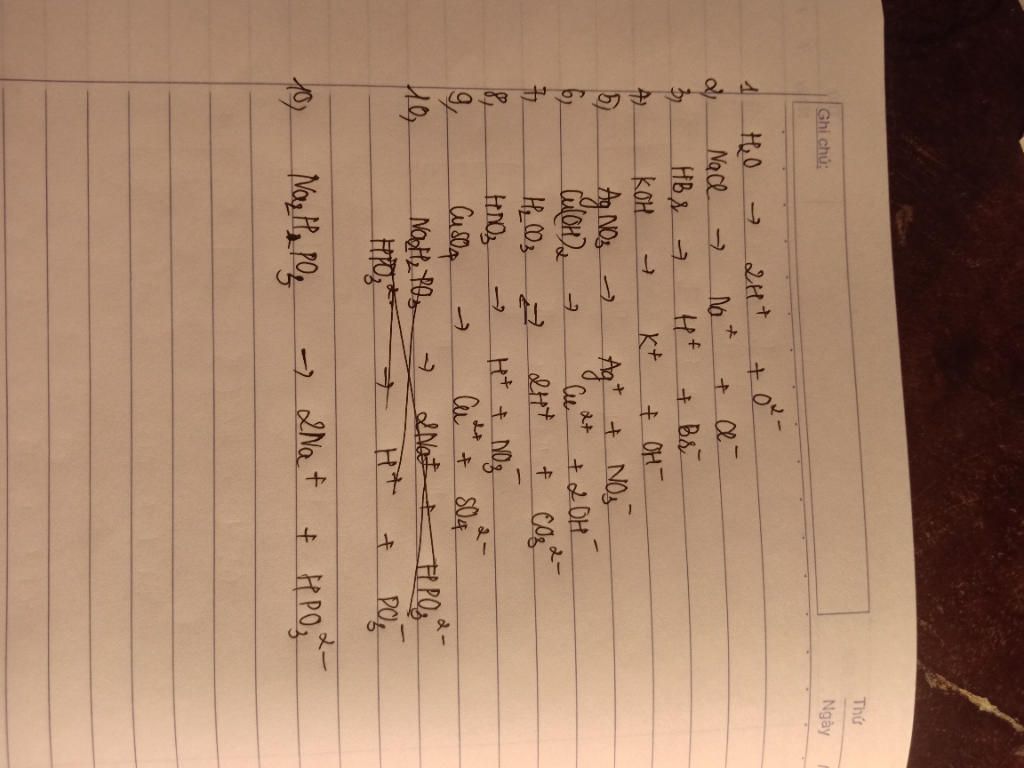 Thứ
Ngày
Ghi chú:
1 H₂O → 2H⁺ + O²⁻
2, NaCl → Na⁺ + Cl⁻
3, HBr → H⁺ + Br⁻
4, KOH → K⁺ + OH⁻
5, AgNO₃ → Ag⁺ + NO₃⁻
6, Cu(OH)₂ → Cu²⁺ + 2OH⁻
7, H₂CO₃ ⇌ 2H⁺ + CO₃²⁻
8, HNO₃ → H⁺ + NO₃⁻
9, CuSO₄ → Cu²⁺ + SO₄²⁻
10, → 2Na⁺ + HPO₃²⁻
HPO₃²⁻ → H⁺ + PO₃⁻
10, → 2Na⁺ + HPO₃²⁻